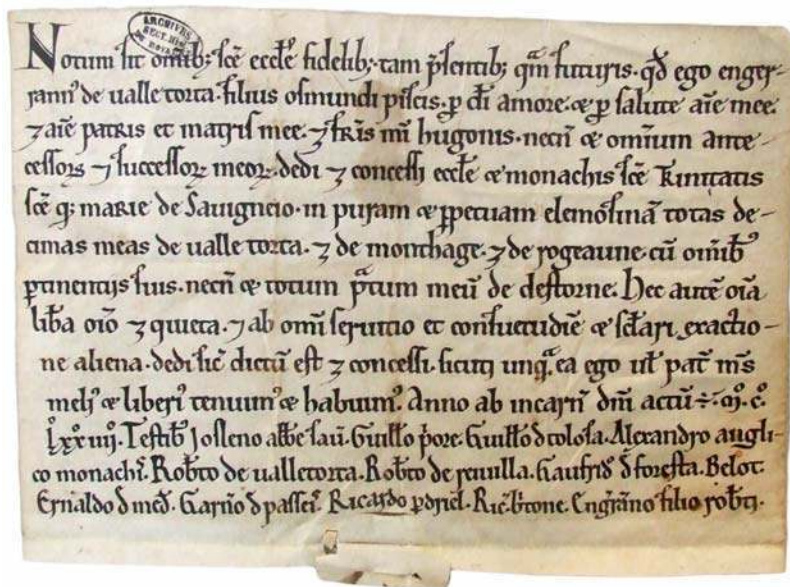 ARCHIVES
SECT. HIS
DU ROYAUME
Notum sit omib; scē eccłe fidelib;. tam p̄sentib; qᵃm futuris. qđ ego enger-
rann' de ualle torta. filius osmundi piscis. ꝑ di amore. & ꝑ salute aīe mee.
⁊ aīe patris et matris mee. ⁊ fr̄is mī hugonis. necn̄ & omīum ante-
cessorꝫ ⁊ successorꝫ meorꝫ. dedi ⁊ concessi eccłe & monachis scē Trinitatis
scē q; marie de Sauigneio. in puram & ꝑpetuam elemosinā totas de-
cimas meas de ualle torta. ⁊ de monthage. ⁊ de rogeaune. cū omib᷒
ꝑtinentijs suis. necn̄ & totum pᵃtum meū de destorne. Hec autē oīa
lib̄a oīo ⁊ quieta. ⁊ ab omī seruitio et consuetudiē & sclari exactio-
ne aliena. dedi sic̄ dictū est ⁊ concessi. sicuti unqᵃ ea ego uł pat̄ ms̄
meli' & liberi' tenuim' & habuim'. Anno ab incarn̄ dnī actū ÷. ɱ̊. c̊.
lxx̊ iiij. Testib᷒ Josleno abb̄e sau. Guillo p̄ore. Guillo đ tolosa. Alexandro angli-
co monachi'. Rob̄to de ualletorta. Rob̄to de reuulla. Gaufrid' đ foresta. Belot.
Ernaldo đ međ. Garn̄o đ passei'. Ricardo ꝑdriel. Ric̄. b̄tone. Engr̄ano filio rob̄ti.